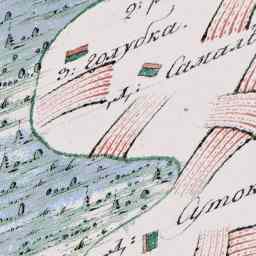 2: р
3: голубка.
д: Самал
Суток
д: